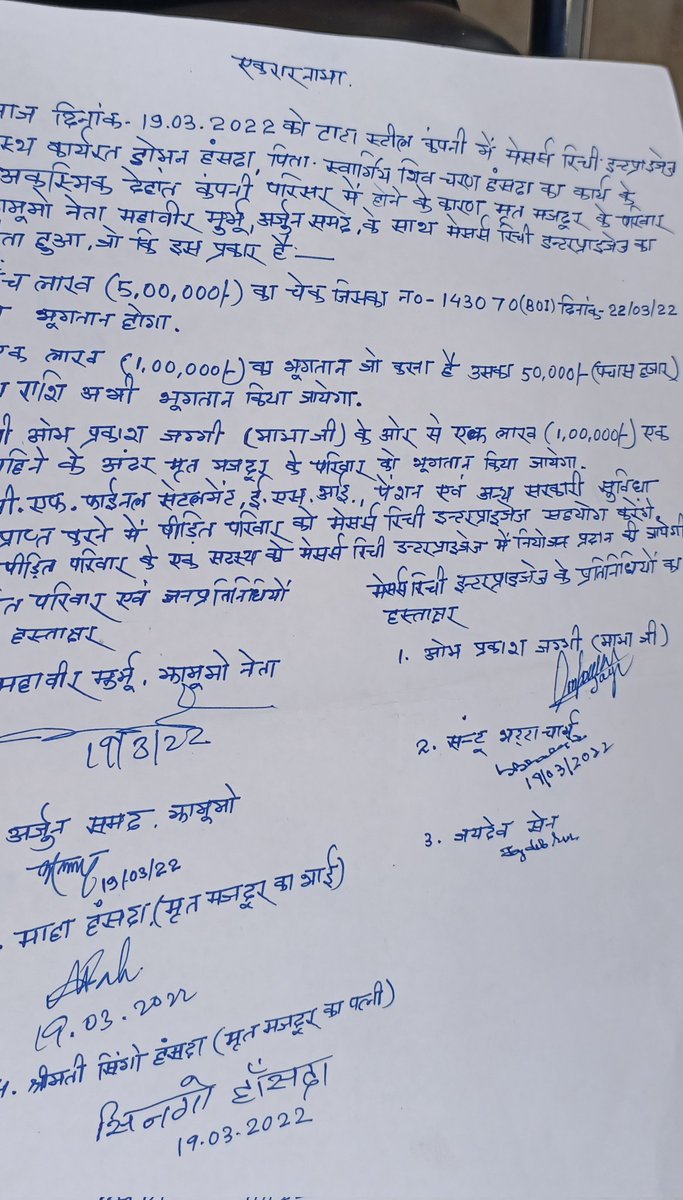 एकरारनामा.
आज दिनांक- 19.03.2022 को टाटा स्टील कंपनी में मेसर्स रिची इन्टरप्राइजेज
कार्यरत डोभन हंसदा, पिता- स्वर्गीय शिव चरण हंसदा का कार्य के
अकस्मिक देहांत कंपनी परिसर में होने के कारण मृत मजदूर के परिवार
झामूमो नेता महावीर मुर्मू, अर्जुन समद, के साथ मेसर्स रिची इन्टरप्राइजेज का
हुआ, जो कि इस प्रकार है:—
लाख (5,00,000/-) का चेक जिसका न०- 143070(BOI) दिनांक- 22/03/22
भूगतान होगा.
लाख (1,00,000/-) का भूगतान जो करना है उसका 50,000/- (पचास हजार)
राशि अभी भूगतान किया जायेगा.
ओम प्रकाश जग्गी (मामा जी) के ओर से एक लाख (1,00,000/-) एक
महिने के अंदर मृत मजदूर के परिवार को भूगतान किया जायेगा.
पी.एफ. फाईनल सेटलमेंट, ई.एस.आई., पेंशन एवं अन्य सरकारी सुविधा
प्राप्त करने में पीड़ित परिवार को मेसर्स रिची इन्टरप्राइजेज सहयोग करेंगे.
पीड़ित परिवार के एक सदस्य को मेसर्स रिची इन्टरप्राइजेज में नियोजन प्रदान की जायेगी
परिवार एवं जनप्रतिनिधियों
हस्ताक्षर
मेसर्स रिची इन्टरप्राइजेज के प्रतिनिधियों का
हस्ताक्षर
महावीर मुर्मू. झामूमो नेता
19/3/22
अर्जुन समद. झामूमो
19/03/22
माहा हंसदा (मृत मजदूर का भाई)
19.03.2022
4. श्रीमती सिंगो हंसदा (मृत मजदूर का पत्नी)
सिनगो हाँसदा
19.03.2022
1. ओम प्रकाश जग्गी (मामा जी)
2. सन्टू भट्टाचार्य
19/03/2022
3. जयदेव सेन